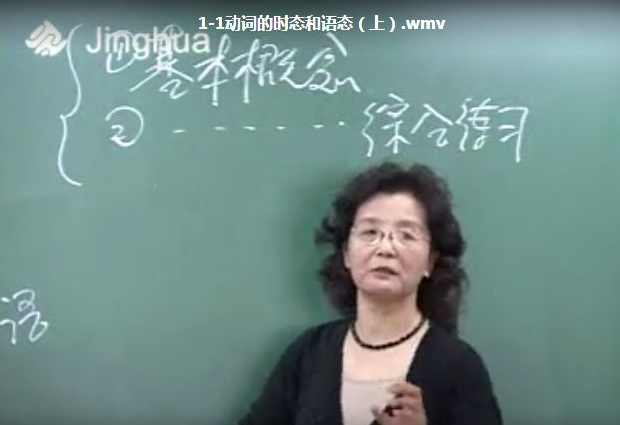 1-1动词的时态和语态（上）.wmv
Jinghua
①基本概念
② - - - - - - 综合练习
语